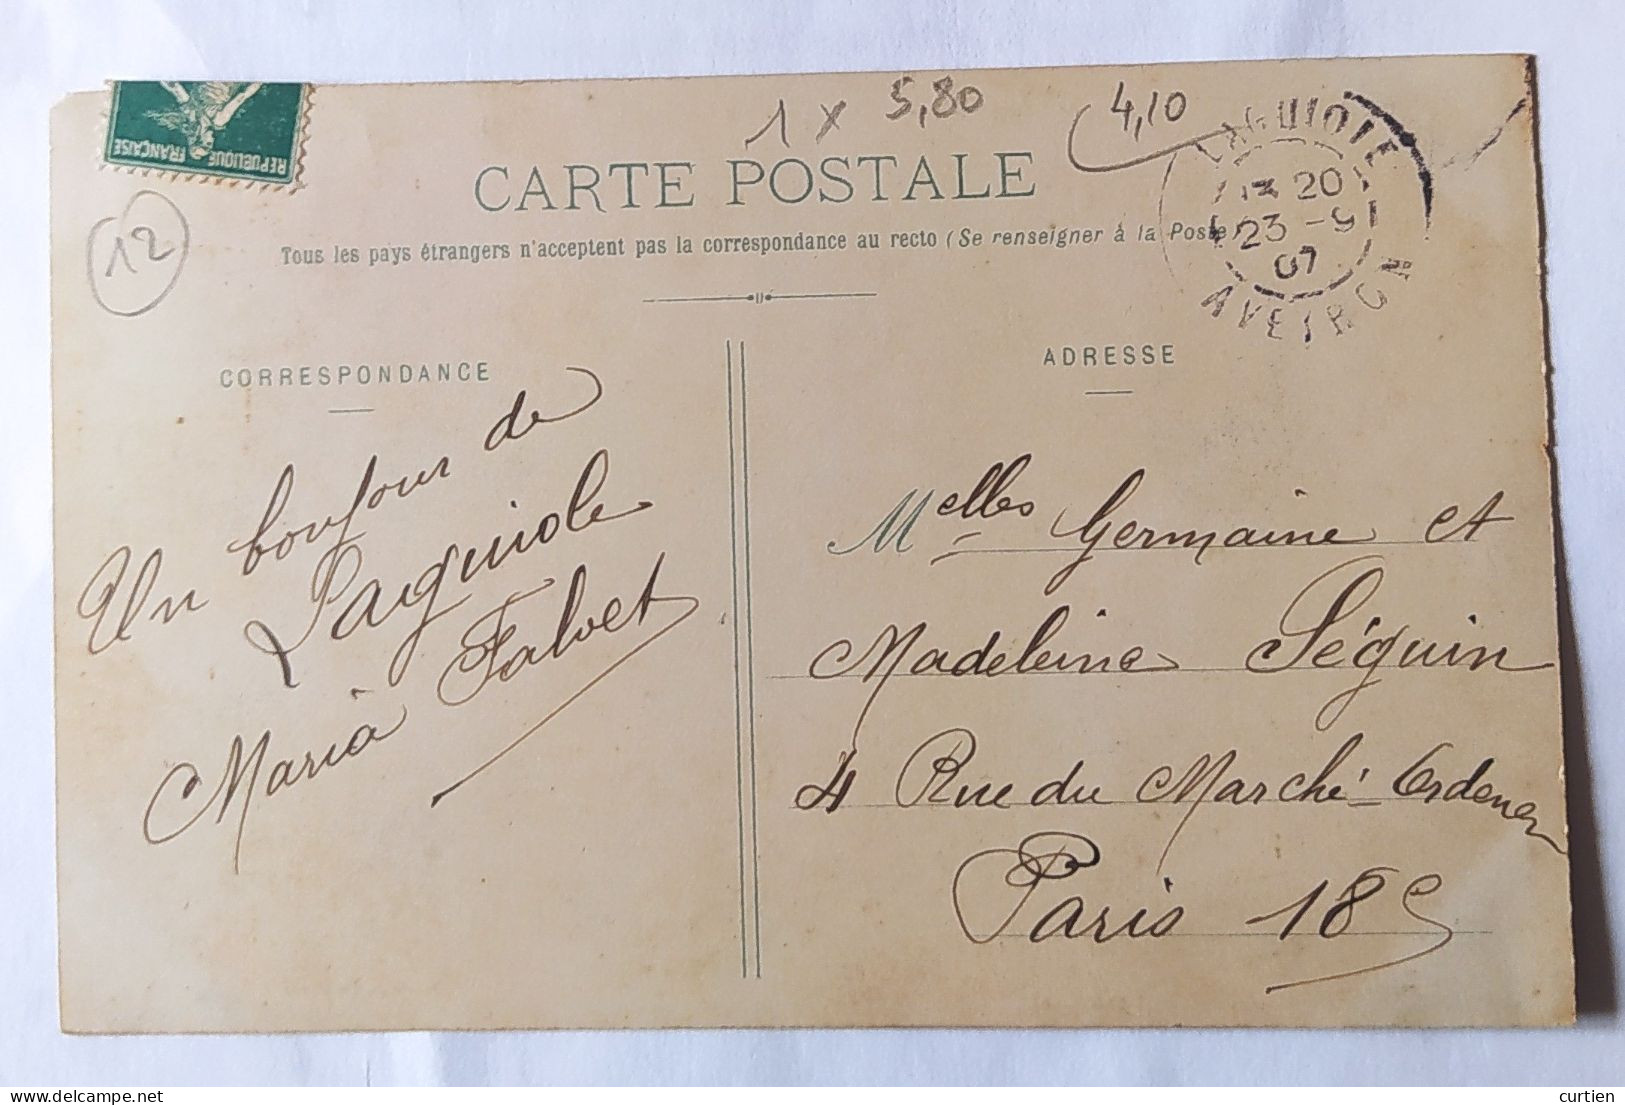 REPUBLIQUE FRANÇAISE
12
1 x 5,80
4,10
CARTE POSTALE
Tous les pays étrangers n'acceptent pas la correspondance au recto (Se renseigner à la Poste)
LAGUIOLE
20
23 -9
07
AVEYRON
CORRESPONDANCE
Un bonjour de
Laguiole
Maria Falvet
ADRESSE
Melles Germaine et
Madeleine Séguin
4 Rue du Marché-Ordener
Paris 18e
delcampe.net
curtien